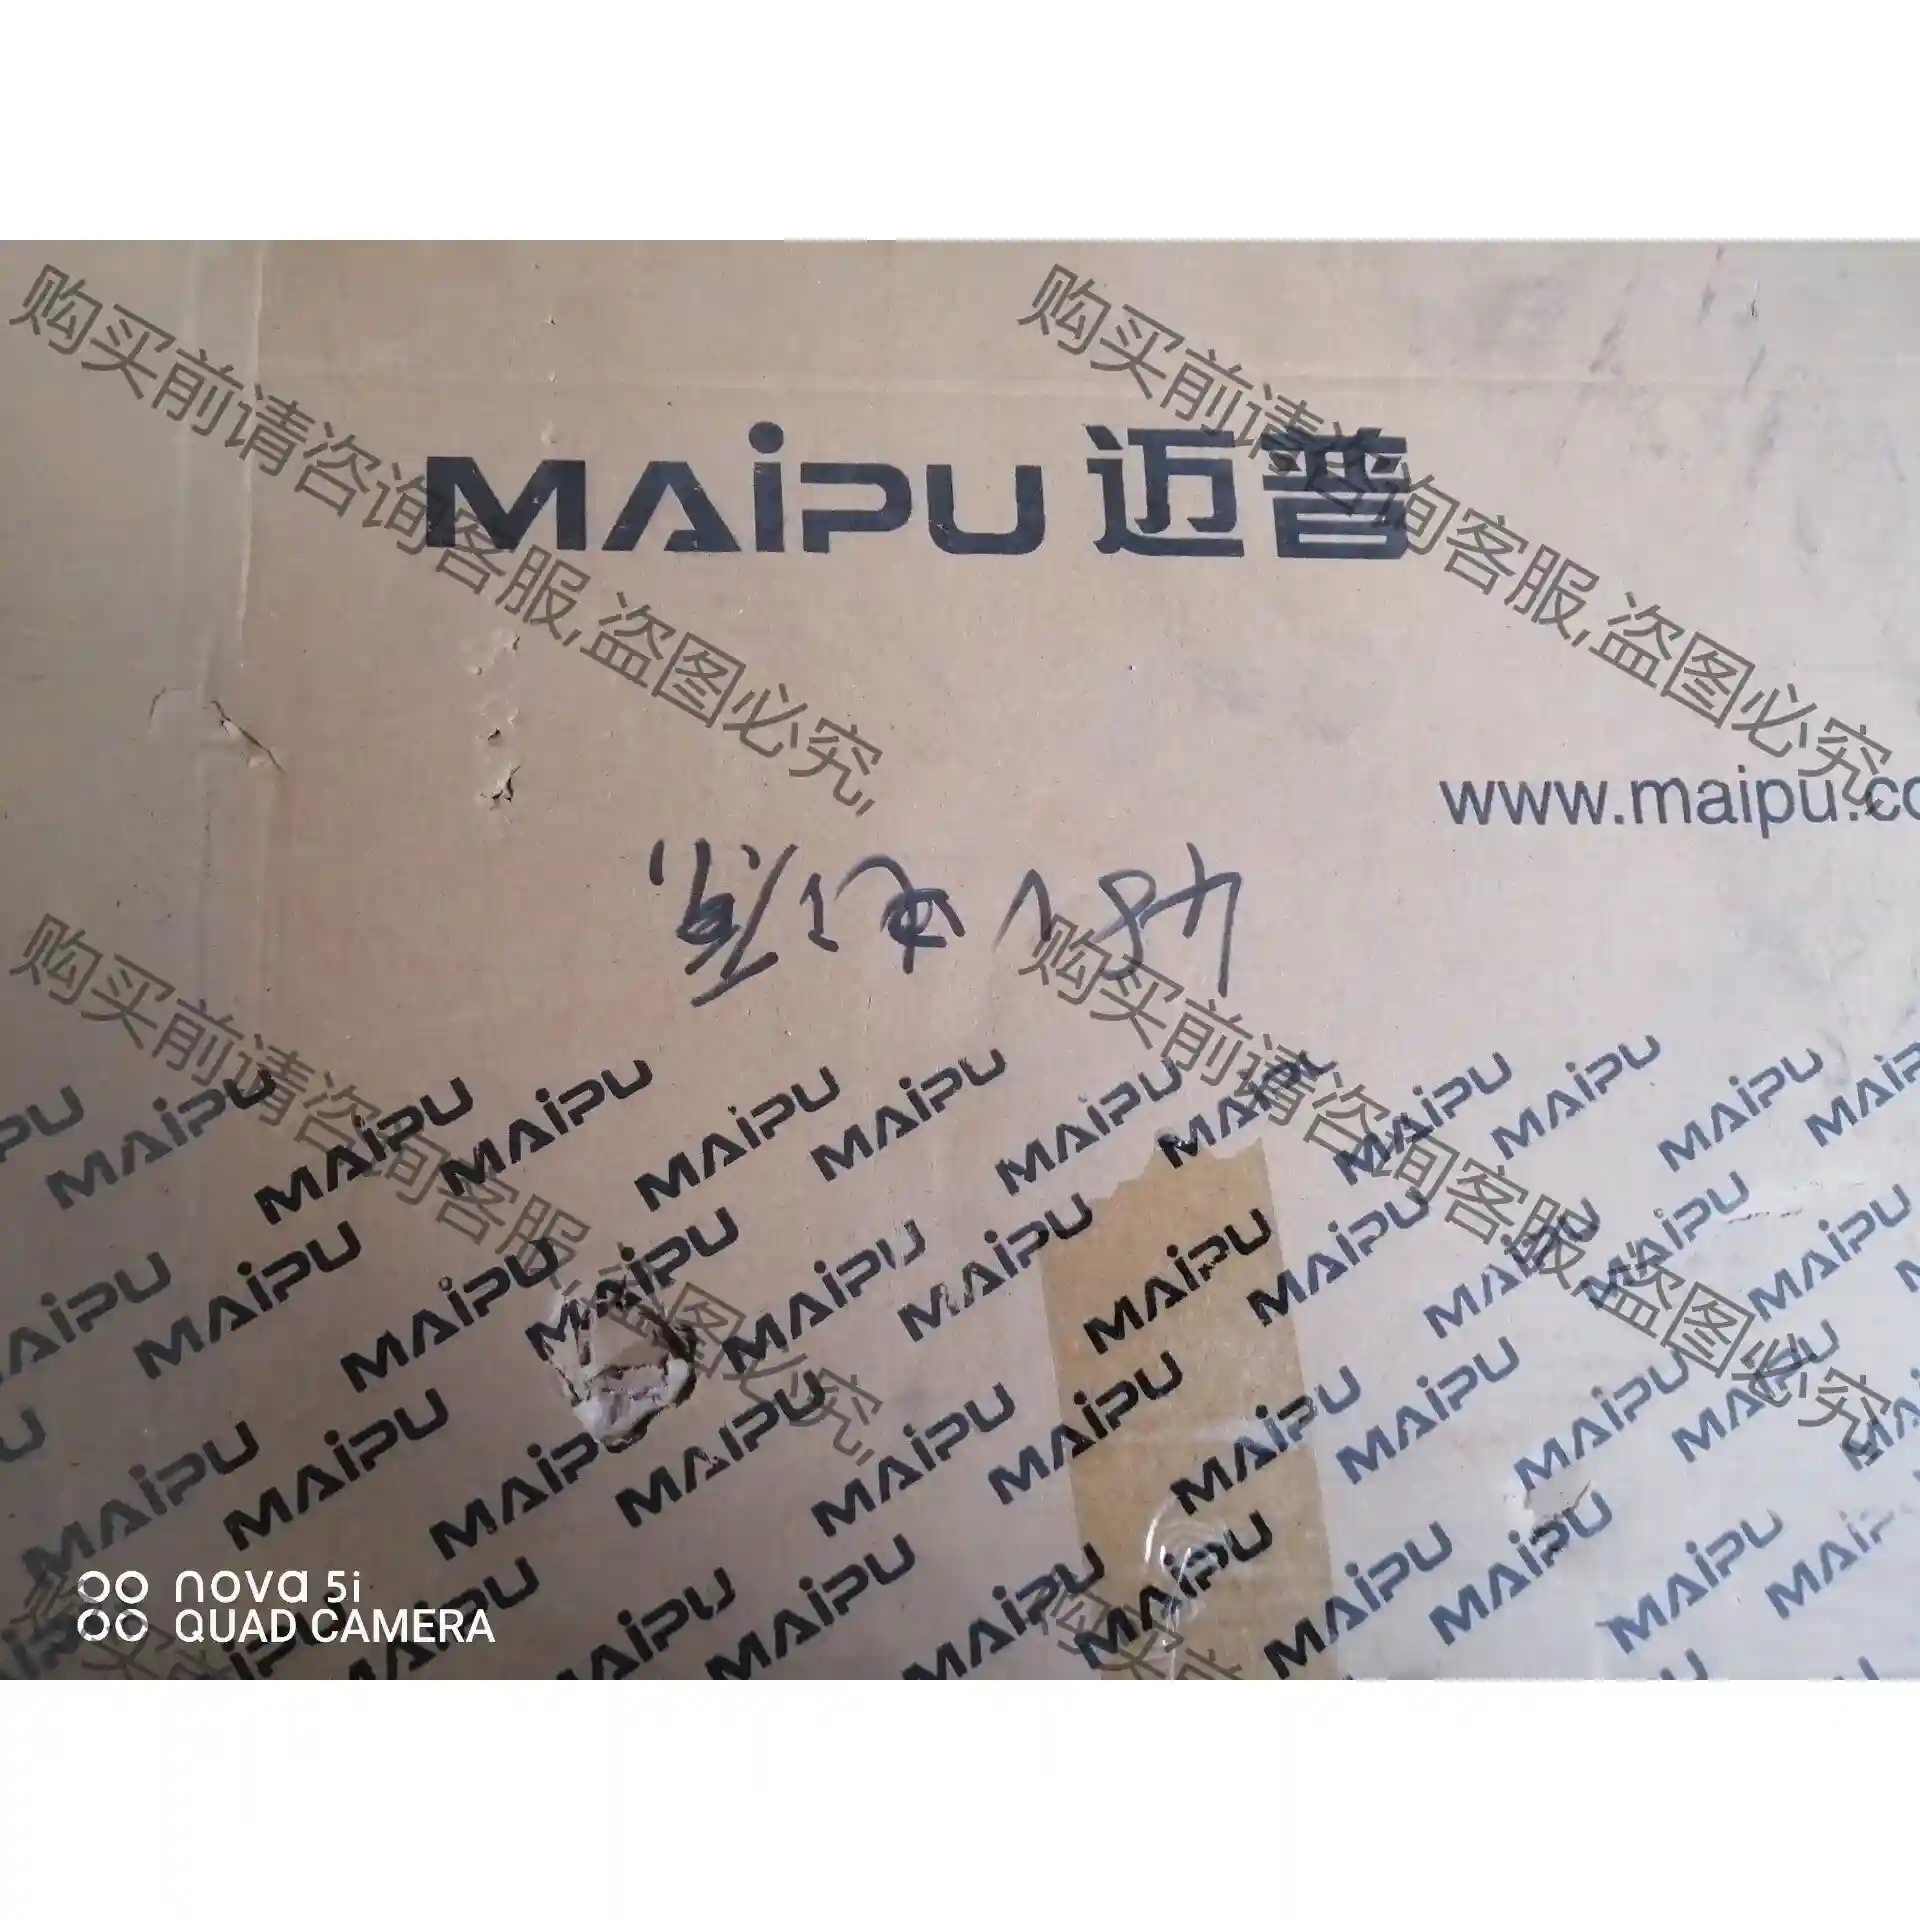 购买前请咨询客服,盗图必究,
购买前请咨询客服,盗图必究,
MAiPU 迈普
www.maipu.co
48V电源
购买前请咨询客服,盗图必究,
购买前请咨询客服,盗图必究,
MAiPU MAiPU MAiPU MAiPU MAiPU MAiPU MAiPU MAiPU MAiPU MAiPU
MAiPU MAiPU MAiPU MAiPU MAiPU MAiPU MAiPU MAiPU MAiPU MAiPU
MAiPU MAiPU MAiPU MAiPU MAiPU MAiPU MAiPU MAiPU MAiPU
nova 5i
QUAD CAMERA
MAiPU MAiPU MAiPU MAiPU MAiPU MAiPU MAiPU
购买前